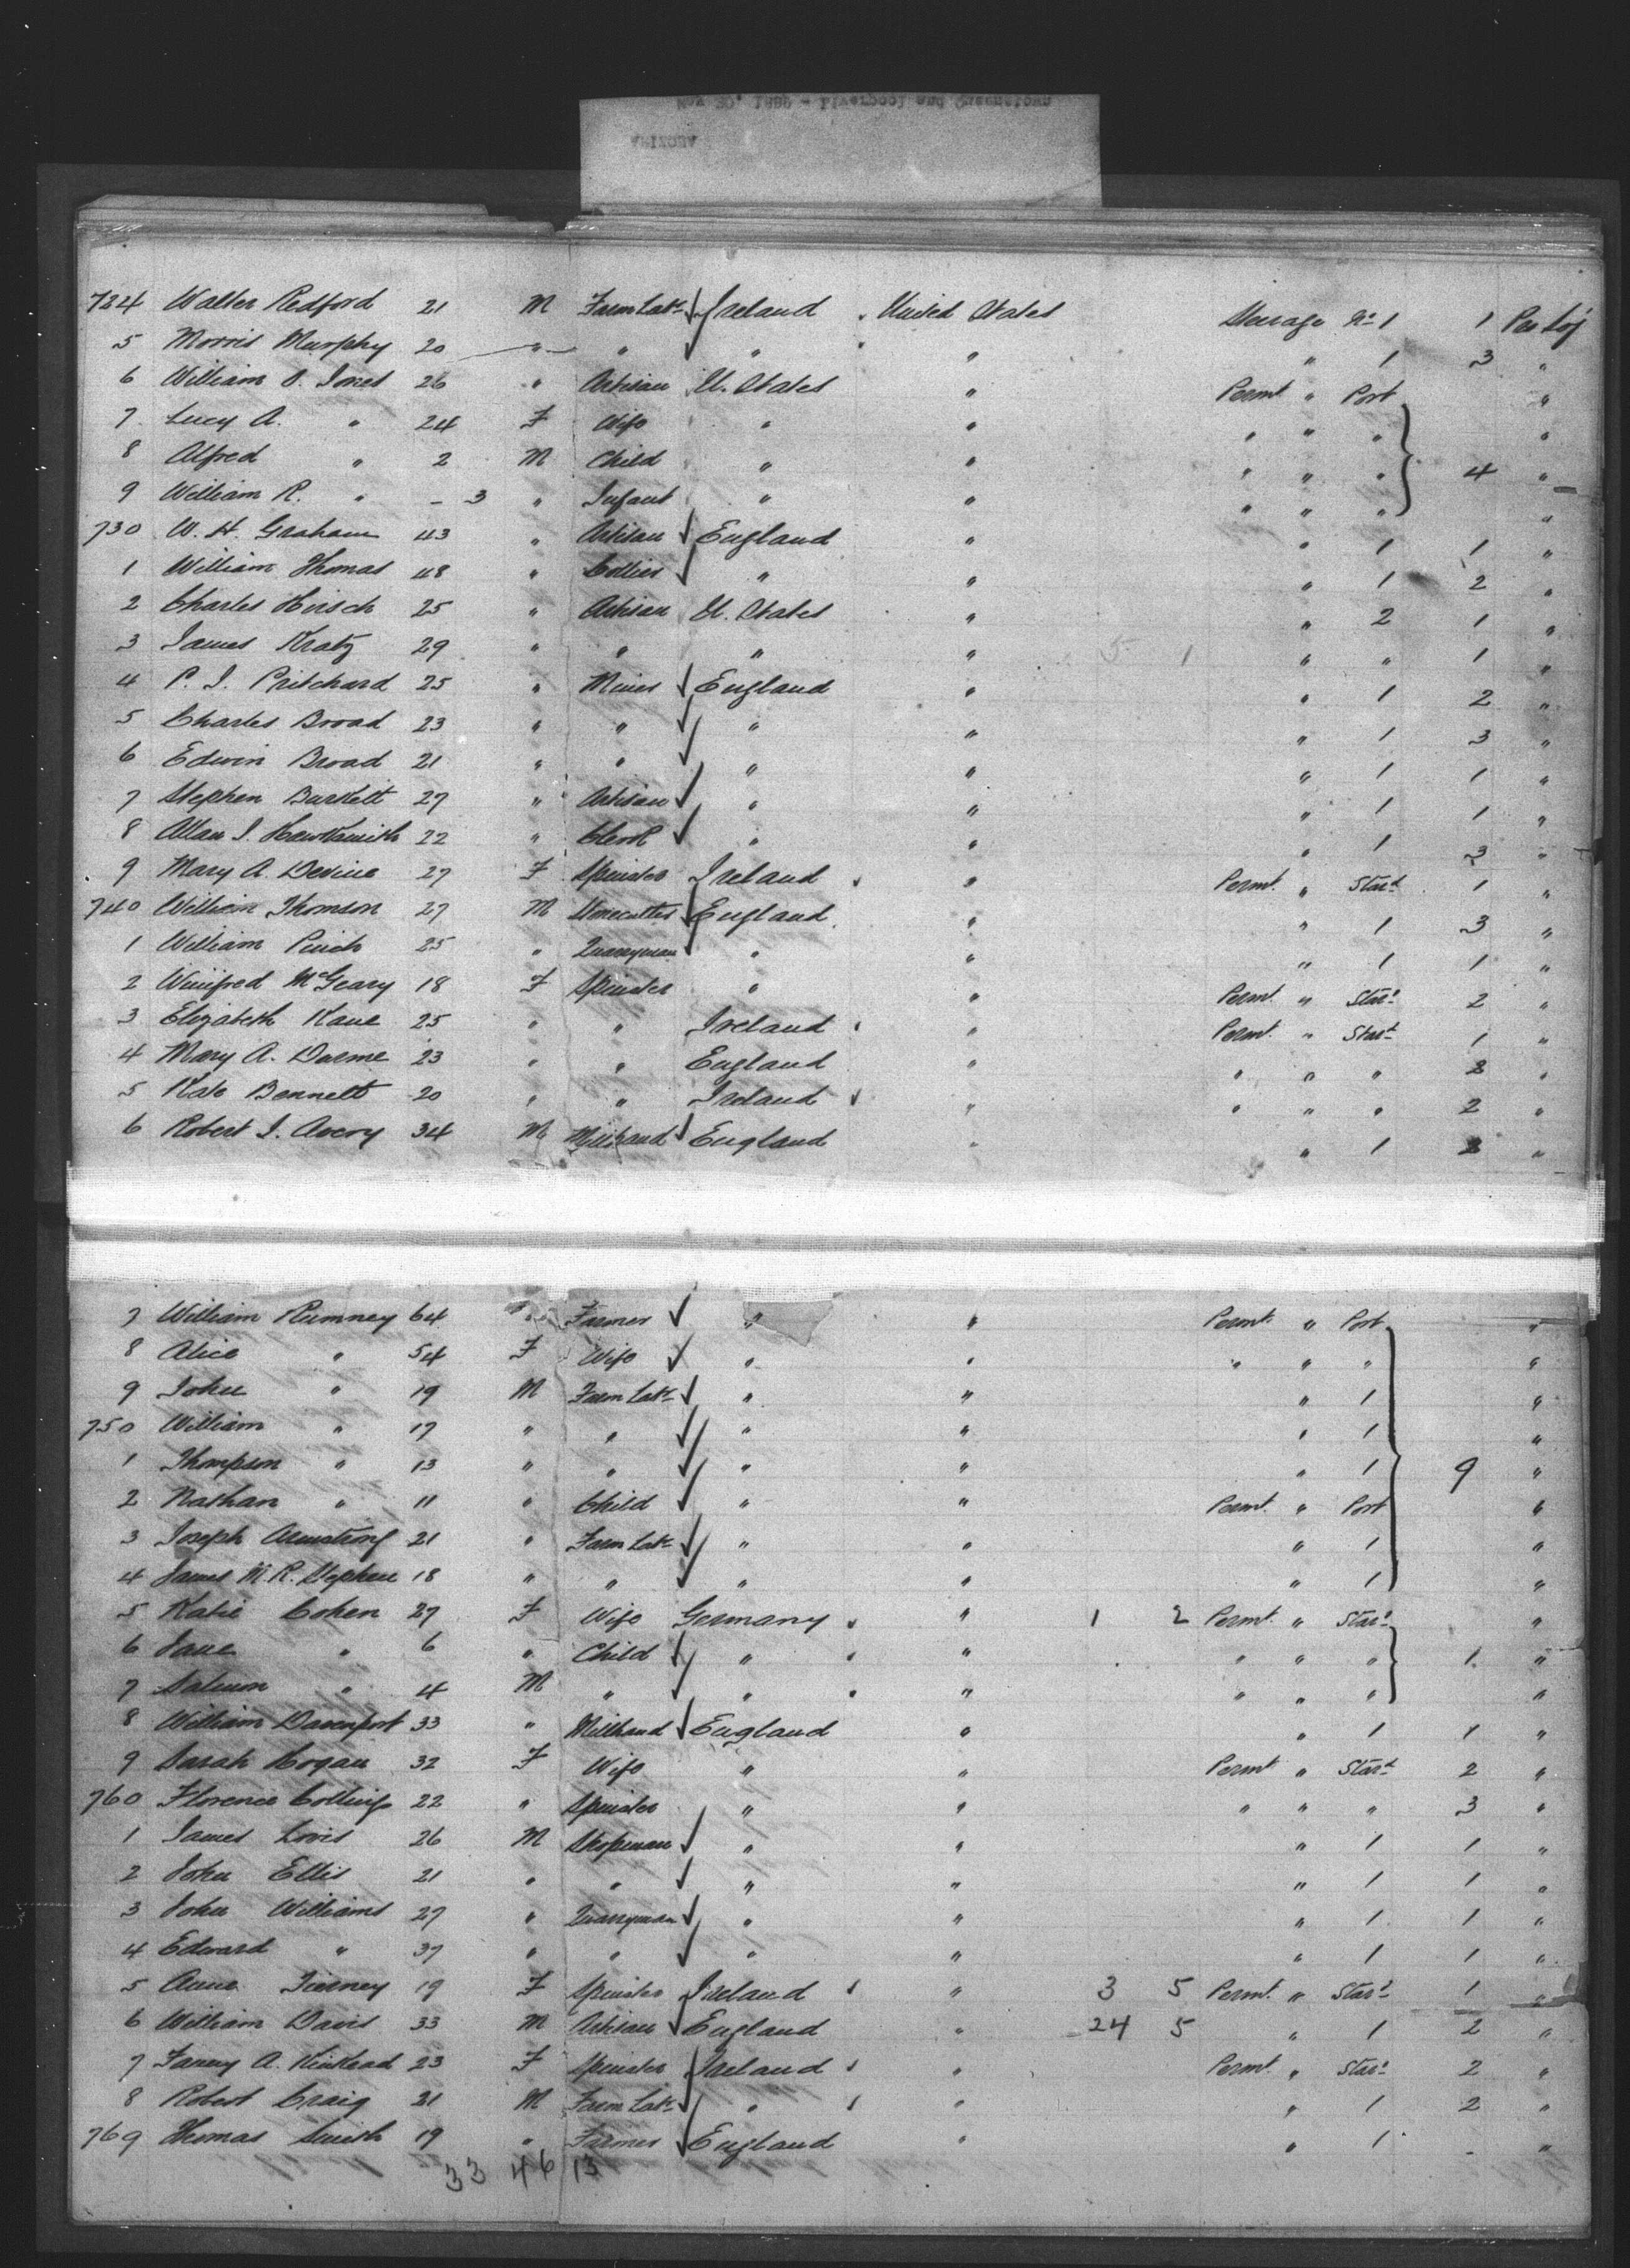 May 20, 1889 - Liverpool and Queenstown
ARIZONA
724 Walter Redford 21 M Farm Labr Ireland United States Steerage No 1 1 Per Loj
5 Morris Murphy 20 " " " " " 1 3 "
6 William O. Jones 26 " Artisan U. States " Permt " Port "
7 Lucy A. " 24 F Wife " " " " " "
8 Alfred " 2 M Child " " " " " 4 "
9 William R. " - 3 " Infant " " " " " "
730 W. H. Graham 43 " Artisan England " " 1 1 "
1 William Thomas 48 " Collier " " " 1 2 "
2 Charles Hirsch 25 " Artisan U. States " " 2 1 "
3 James Kratz 29 " " " " 5 1 " " 1 "
4 P. J. Pritchard 25 " Miner England " " 1 2 "
5 Charles Broad 23 " " " " " 1 3 "
6 Edwin Broad 21 " " " " " 1 1 "
7 Stephen Burkett 27 " Artisan " " " 1 1 "
8 Allan J. Hawksmith 22 " Clerk " " " 1 3 "
9 Mary A. Devine 27 F Spinster Ireland " Permt. " Start 1 "
740 William Thomson 27 M Stonecutter England " " 1 3 "
1 William Pinch 25 " Quarryman " " " 1 1 "
2 Winifred McGeary 18 F Spinster " " Permt. " Start 2 "
3 Elizabeth Kane 25 " " Ireland " Permt. " Start 1 "
4 Mary A. 23 " " England " " " " 2 "
5 Kate Bennett 20 " " Ireland " " " " 2 "
6 Robert J. Avery 34 M Millhand England " " 1 2 "
7 William Rumney 64 " Farmer " " Permt. " Port "
8 Alice " 54 F Wife " " " " " "
9 John " 19 M Farm Labr " " " 1 "
750 William " 17 " " " " " 1 "
1 Thompson " 13 " " " " " 1 9 "
2 Nathan " 11 " Child " " Permt. " Port "
3 Joseph Armstrong 21 " Farm Labr " " " 1 "
4 James M. R. Stephen 18 " " " " " 1 "
5 Katie Cohen 27 F Wife Germany " 1 2 Permt. " Start "
6 Jane " 6 " Child " " " " " 1 "
7 Salmon " 4 M " " " " " " "
8 William Davenport 33 " Millhand England " " 1 1 "
9 Sarah Hogan 32 F Wife " " Permt " Start 2 "
760 Florence Collings 22 " Spinster " " " " " 3 "
1 James Lovis 26 M Shopman " " " 1 1 "
2 John Ellis 21 " " " " " 1 1 "
3 John Williams 27 " Quarryman " " " 1 1 "
4 Edward " 37 " " " " " 1 1 "
5 Anne Tierney 19 F Spinster Ireland " 3 5 Permt. " Start 1 "
6 William Davis 33 M Artisan England " 24 5 " 1 2 "
7 Fanny A. Kinkead 23 F Spinster Ireland " Permt. " Start 2 "
8 Robert Craig 21 M Farm Labr " " " 1 2 "
769 Thomas Smith 19 " Farmer England " " 1 - "
33 46 13